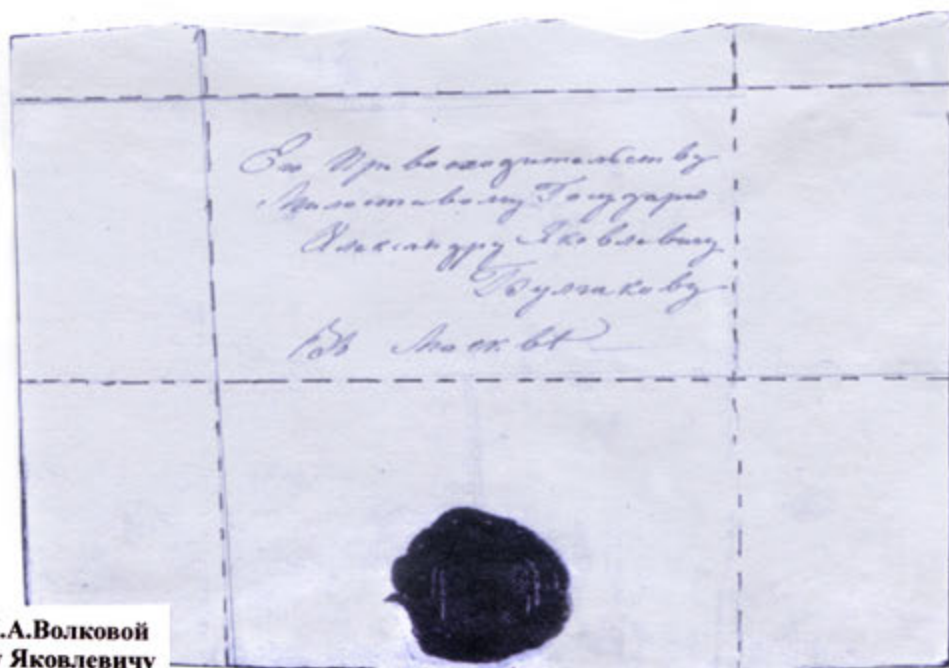 Его Превосходительству
Милостивому Государю
Александру Яковлевичу
Булгакову
Въ Москвѣ
.А.Волковой
у Яковлевичу